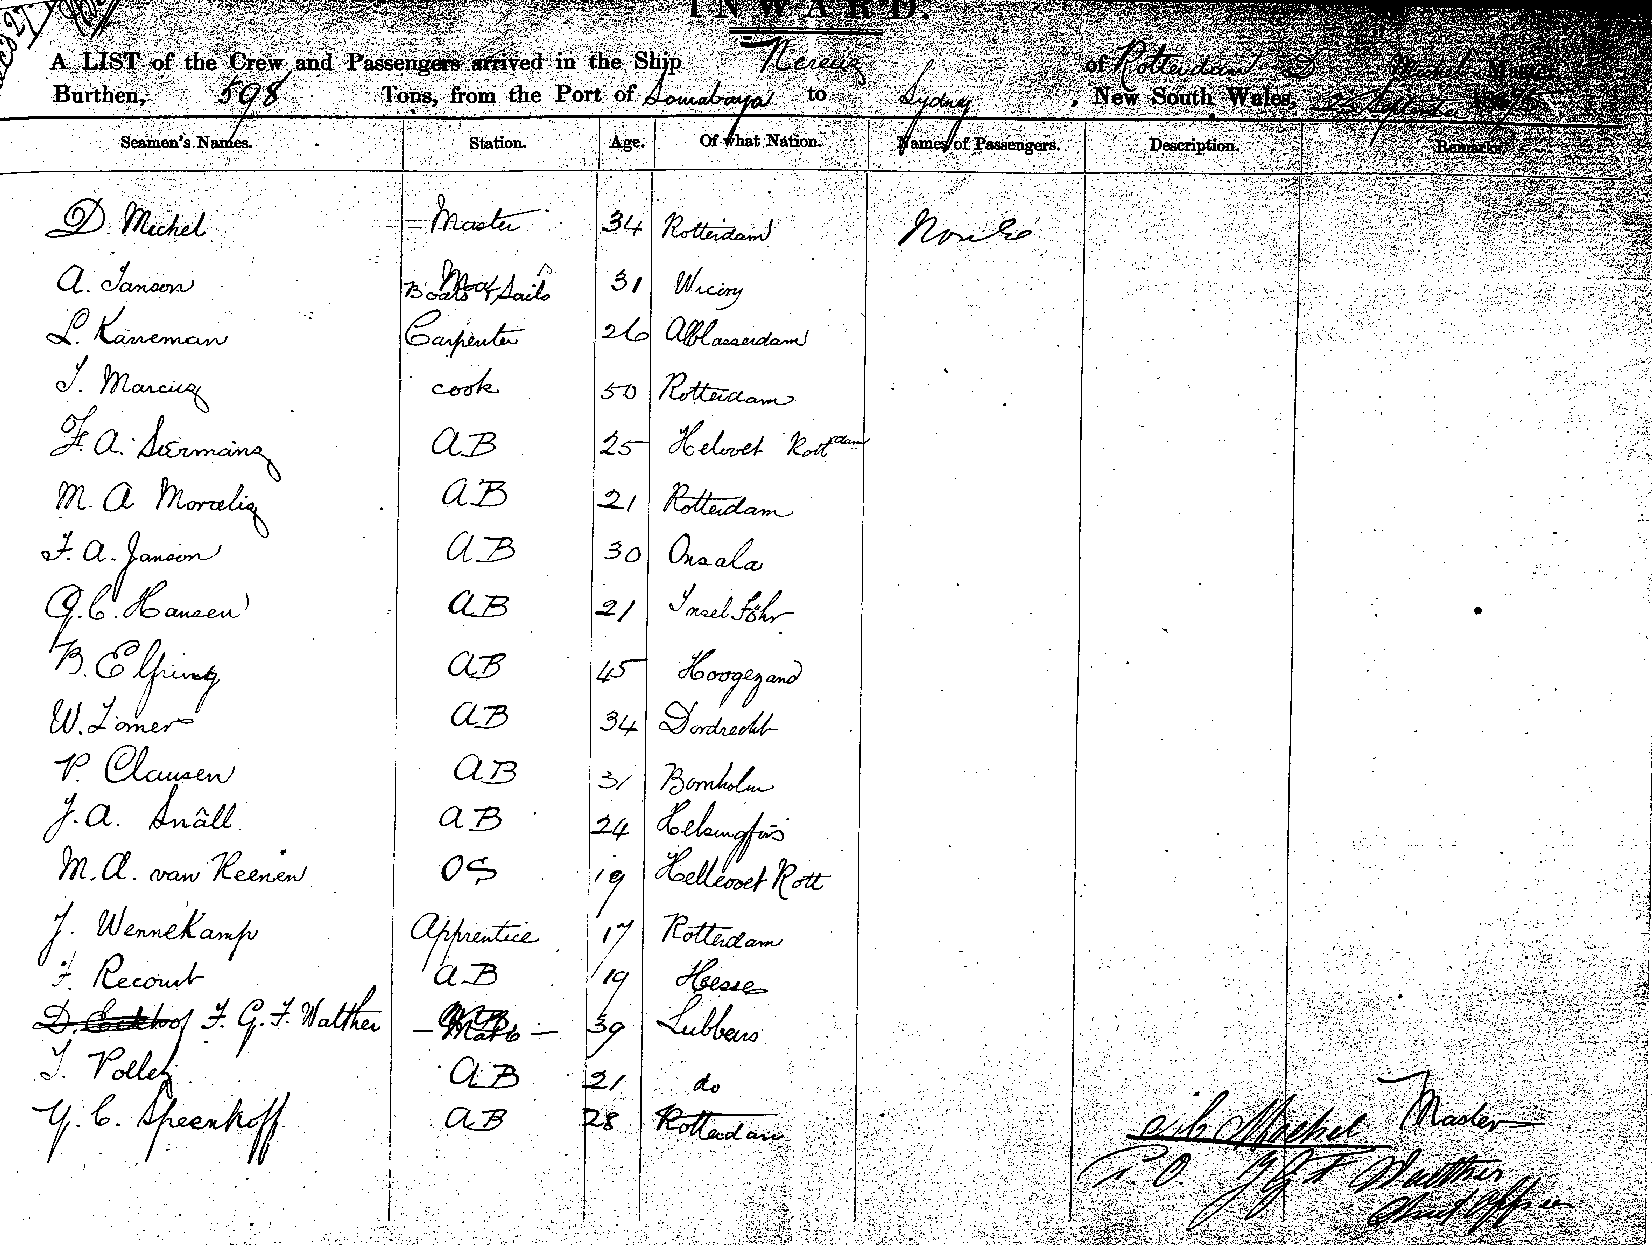 INWARD.
A LIST of the Crew and Passengers arrived in the Ship Nereus of Rotterdam D Michel Master
Burthen, 598 Tons, from the Port of Sourabaya to Sydney, New South Wales,
Seamen's Names. Station. Age. Of what Nation. Names of Passengers. Description. Remarks
D. Michel Master 34 Rotterdam
A. Janson Boats & Sails 31
L. Karreman Carpenter 26 Alblasserdam
J. Marcus cook 50 Rotterdam
F. A. AB 25 Helovet Rottdam
M. A AB 21 Rotterdam
F. A. Janson AB 30 Onsala
G. C. Hansen AB 21 Insel Föhr
B. Elfring AB 45 Hoogezand
W. Lomer AB 34 Dordrecht
P. Clausen AB 31 Bornholm
J. A. Snâll AB 24 Helsingfors
M. A. van Keenen OS 19 Hellevoet Rott
J. Wennekamp Apprentice 17 Rotterdam
F. Recourt AB 19 Hesse
D. F. G. F. Walther Mate 39
J. AB 21 do
C. Speenhoff AB 28 Rotterdam
Michel Master
P. O. F G F Walther
Chief Officer